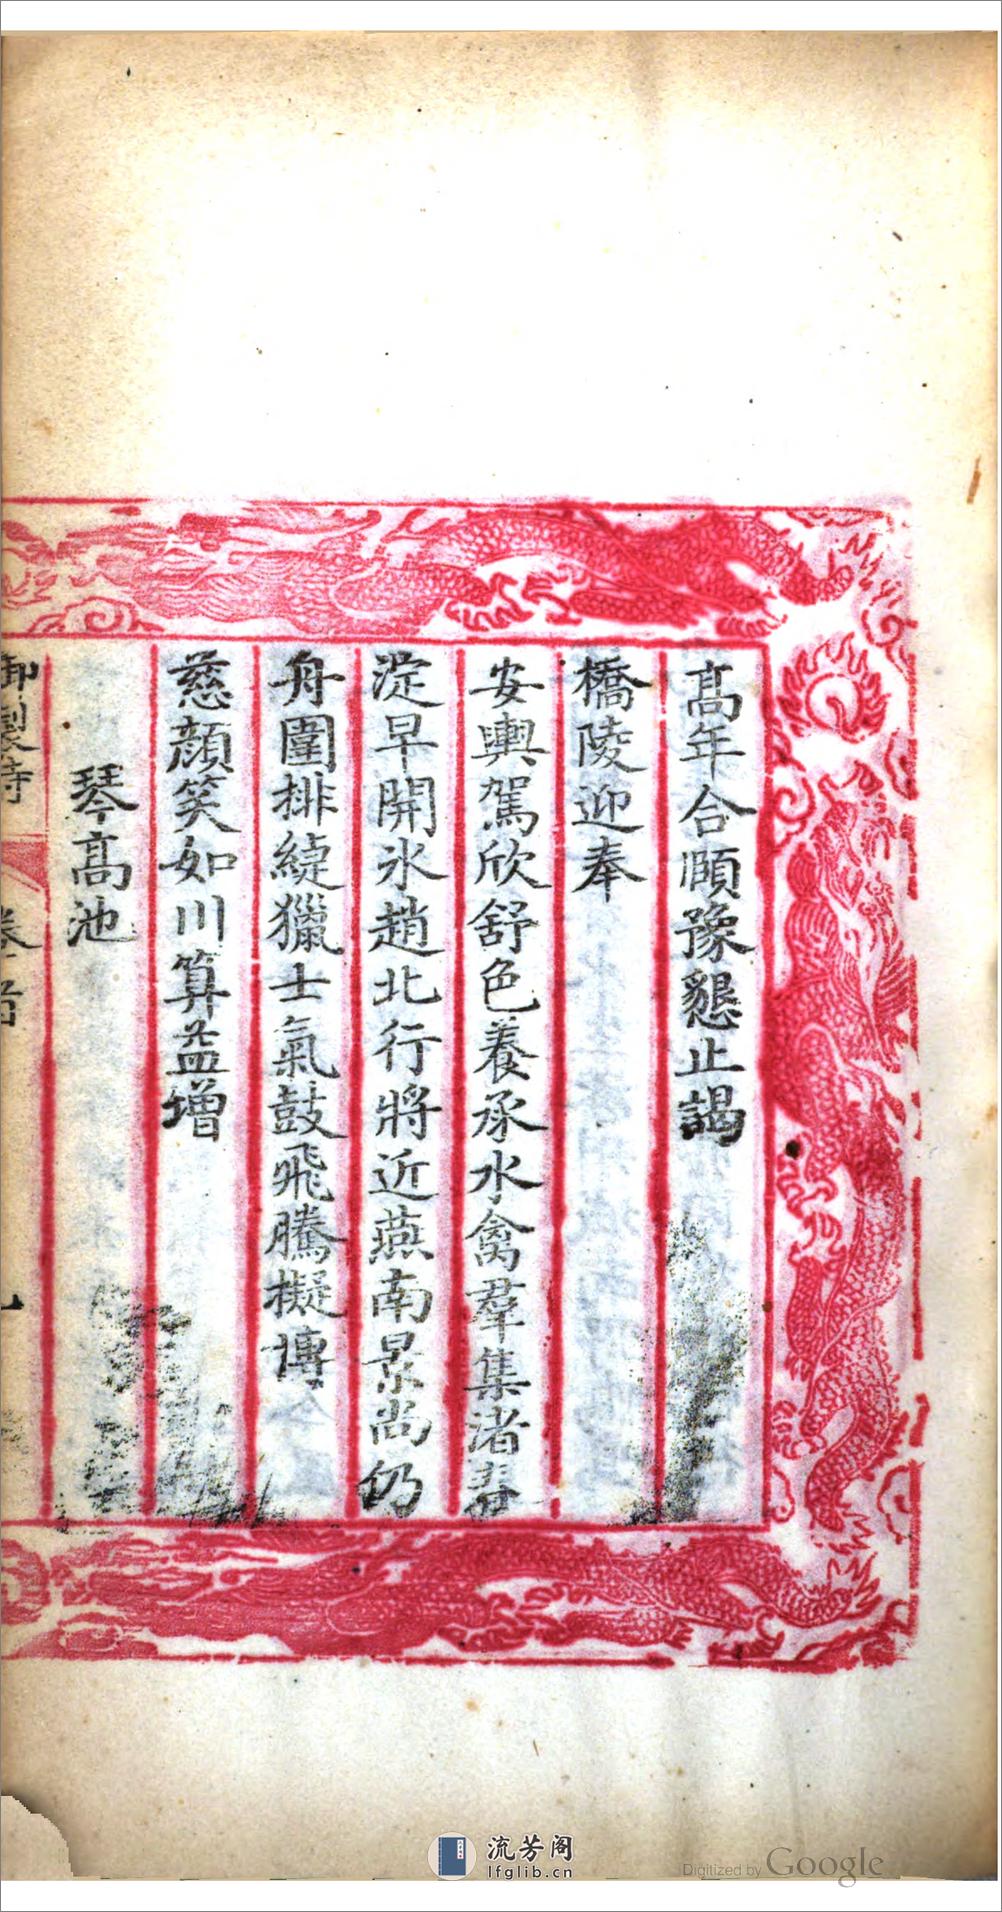 高年合頤豫懇止謁
橋陵迎奉
安輿駕欣舒色養承水禽羣集渚春
淀早開氷趙北行將近燕南景尚仍
舟圍排緹獵士氣鼓飛騰擬博
慈顔笑如川算益增
琴高池
御製詩
流芳阁
lfglib.cn
Digitized by Google